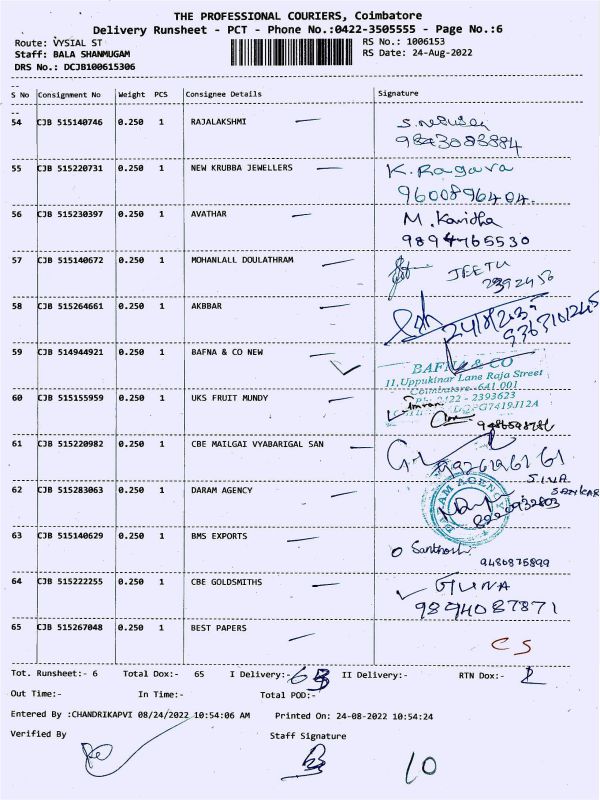 THE PROFESSIONAL COURIERS, Coimbatore
Delivery Runsheet - PCT - Phone No.:0422-3505555 - Page No.:6
Route: VYSIAL ST
RS No.: 1006153
Staff: BALA SHANMUGAM
RS Date: 24-Aug-2022
DRS No.: DCJB100615306
S No Consignment No Weight PCS Consignee Details Signature
54 CJB 515140746 0.250 1 RAJALAKSHMI
9843083884
55 CJB 515220731 0.250 1 NEW KRUBBA JEWELLERS K. Ragava
9600896404.
56 CJB 515230397 0.250 1 AVATHAR M. Kavidha
9894765530
57 CJB 515140672 0.250 1 MOHANLALL DOULATHRAM JEETU
2392456
58 CJB 515264661 0.250 1 AKBBAR
59 CJB 514944921 0.250 1 BAFNA & CO NEW
BAFNA & CO
11, Uppukinar Lane Raja Street
Coimbatore-641 001
Ph: 0422 - 2393623
60 CJB 515155959 0.250 1 UKS FRUIT MUNDY Imran
61 CJB 515220982 0.250 1 CBE MAILGAI VYABARIGAL SAN
62 CJB 515283063 0.250 1 DARAM AGENCY SIVA
SANKAR
DARAM AGENCY
8220932803
63 CJB 515140629 0.250 1 BMS EXPORTS Santhosh
9486875899
64 CJB 515222255 0.250 1 CBE GOLDSMITHS GUNA
9894087871
65 CJB 515267048 0.250 1 BEST PAPERS CS
Tot. Runsheet:- 6 Total Dox:- 65 I Delivery:- 63 II Delivery:- RTN Dox:- 2
Out Time:- In Time:- Total POD:-
Entered By :CHANDRIKAPVI 08/24/2022 10:54:06 AM Printed On: 24-08-2022 10:54:24
Verified By Staff Signature
10